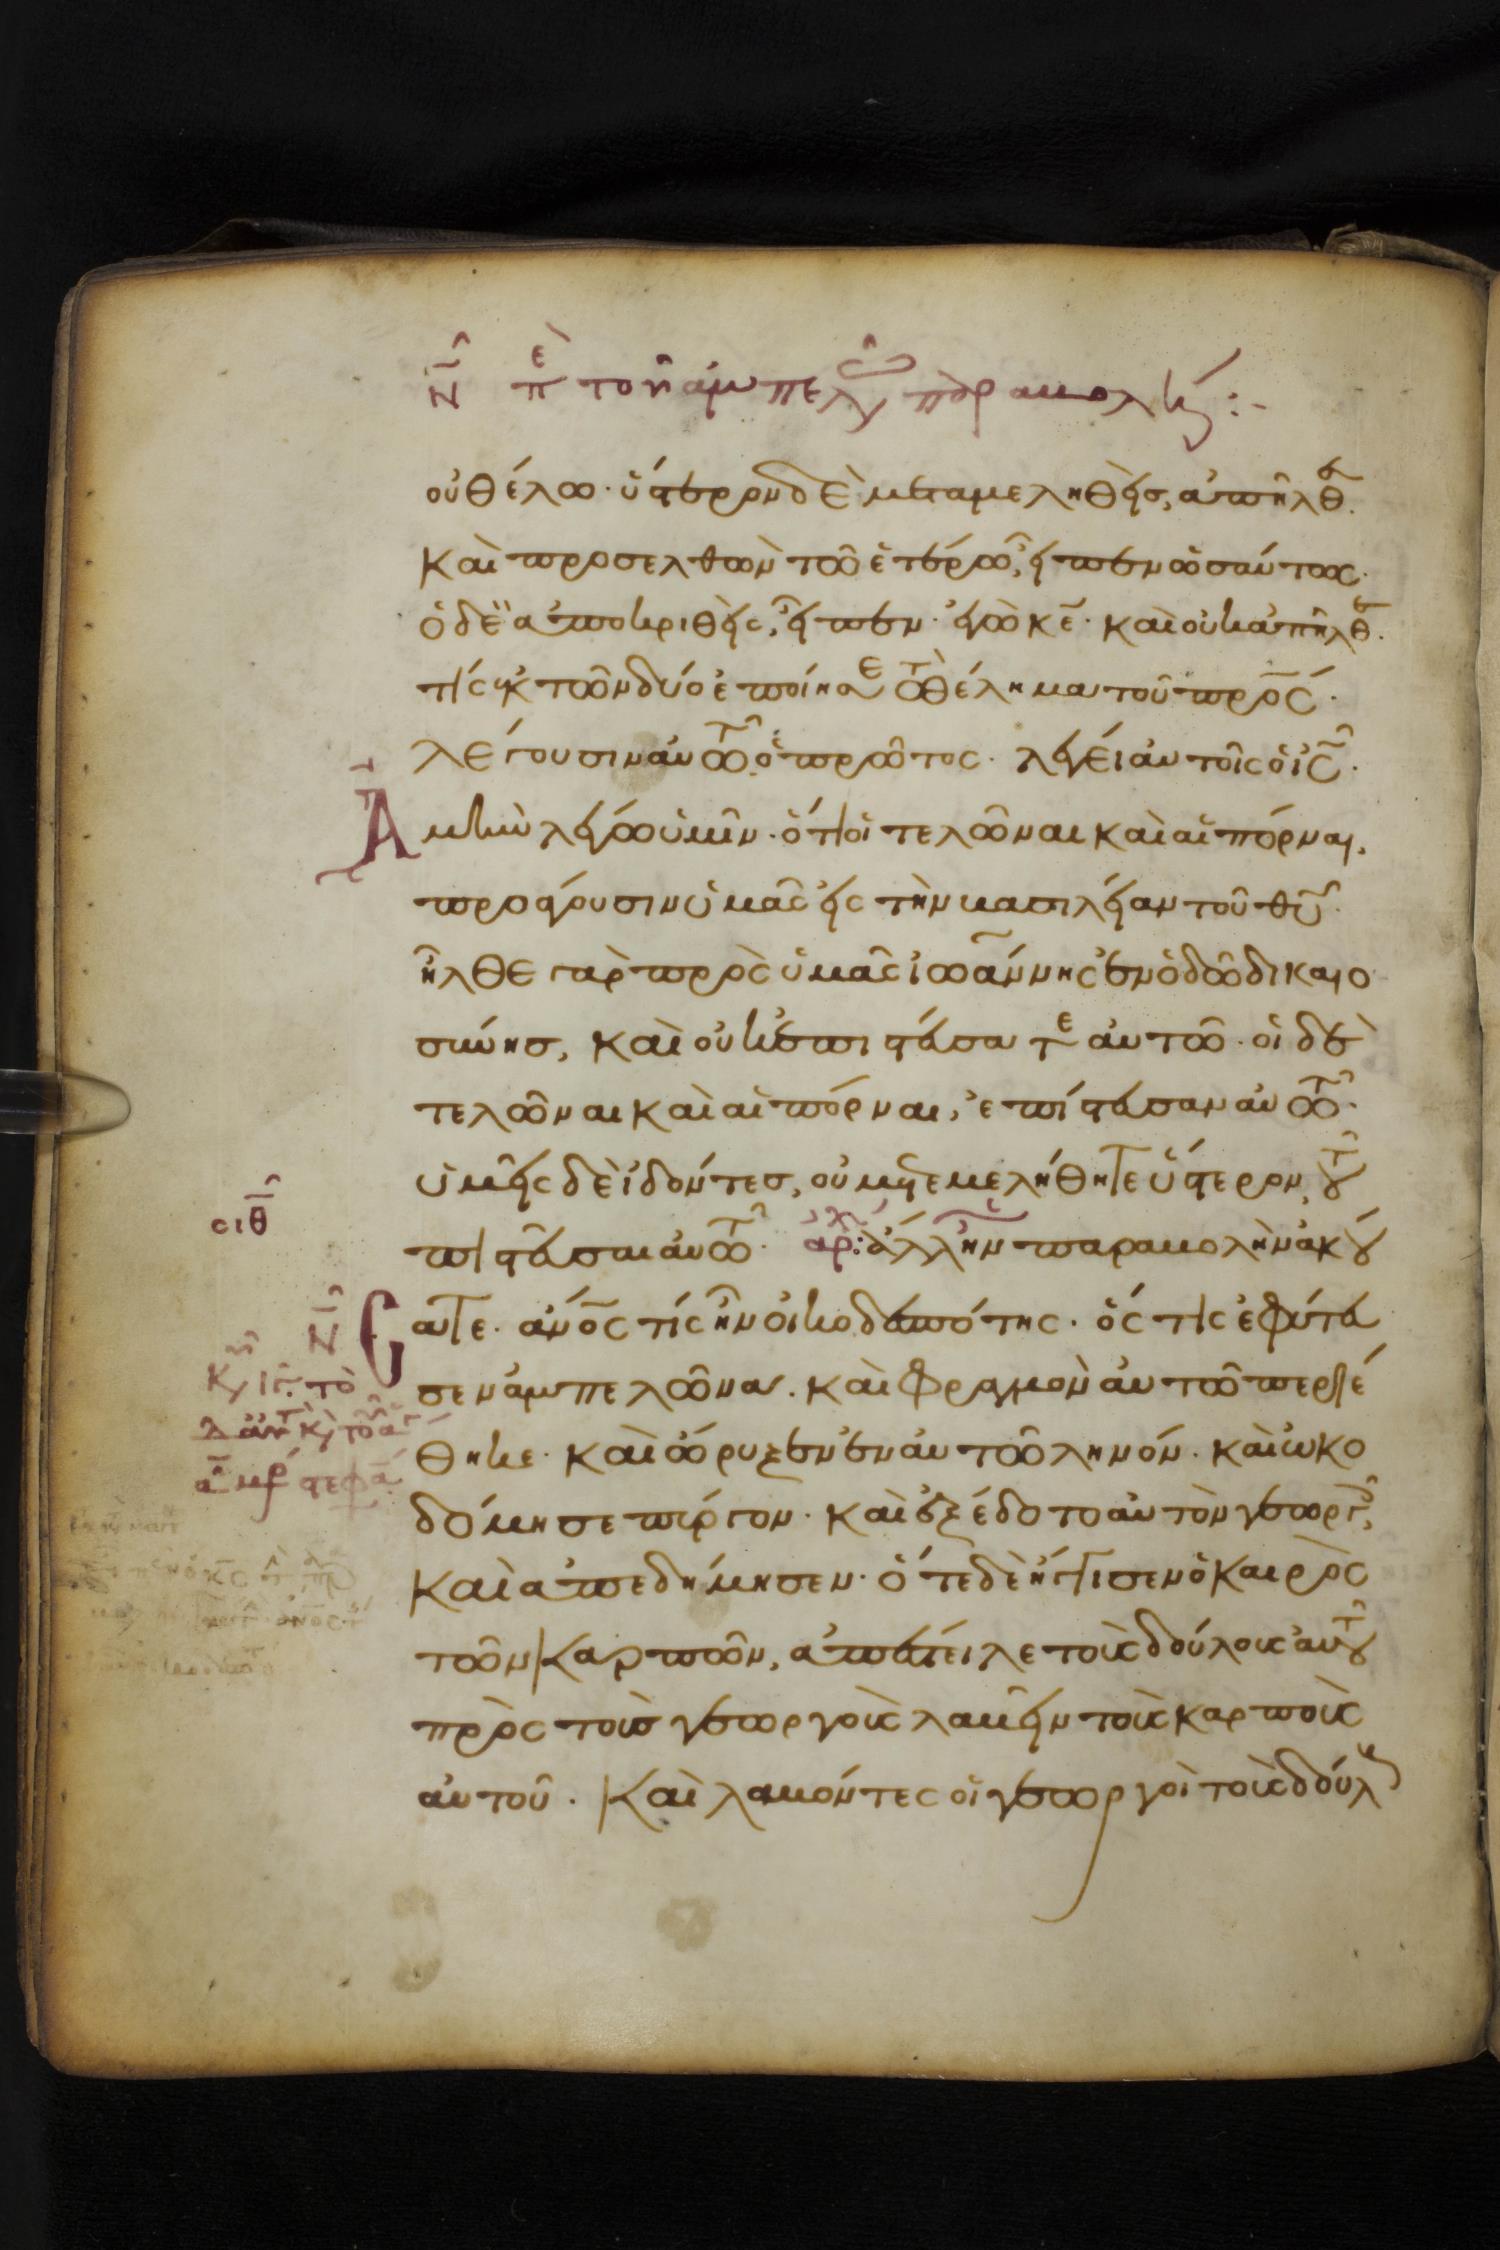 ν̅ πε το͂ν ἀμπελ παραβολή:-
οὐ θέλω· ὕστερον δὲ μεταμεληθεὶς, ἀπῆλθ.
Καὶ προσελθὼν τῶ ἑτέρω, εἶπεν ὡσαύτως·
ὁ δὲ ἀποκριθεὶς, εἶπεν· ἐγὼ κε̅· καὶ οὐκ ἀπῆλθ.
τίς ἐκ τῶν δύο ἐποίησε τὸ θέλημα τοῦ πρ̅ς·
λέγουσιν αὐτῶ· ὁ πρῶτος· λέγει αὐτοῖς ὁ ι̅ς·
Ἀμὴν λέγω ὑμῖν· ὅτι οἱ τελῶναι καὶ αἱ πόρναι,
προάγουσιν ὑμᾶς εἰς τὴν βασιλείαν τοῦ θυ̅·
ἦλθε γὰρ πρὸς ὑμᾶς ἰωάννης ἐν ὁδῶ δικαιο
σύνης, καὶ οὐκ ἐπιστεύσατε αὐτῶ· οἱ δὲ
τελῶναι καὶ αἱ πόρναι, ἐπίστευσαν αὐτῶ·
ὑμεῖς δὲ ἰδόντες, οὐ μετεμελήθητε ὕστερον, τοῦ
σιθ̅
πιστεῦσαι αὐτῶ· ἀρχ: ἄλλην παραβολὴν ἀκού
ν̅
σατε· ἀν̅ος τίς ἦν οἰκοδεσπότης· ὅς τις ἐφύτευ
σεν ἀμπελῶνα· καὶ φραγμὸν αὐτῶ περιέ
θηκε· καὶ ὤρυξεν ἐν αὐτῶ ληνόν· καὶ ὠκο
δόμησε πύργον· καὶ ἐξέδοτο αὐτὸν γεωργ,
Καὶ ἀπεδήμησεν· ὅτε δὲ ἤγγισεν ὁ καιρὸς
τῶν καρπῶν, ἀπέστειλε τοὺς δούλους αὐτοῦ
πρὸς τοὺς γεωργοὺς λαβεῖν τοὺς καρποὺς
αὐτοῦ. Καὶ λαβόντες οἱ γεωργοὶ τοὺς δούλους